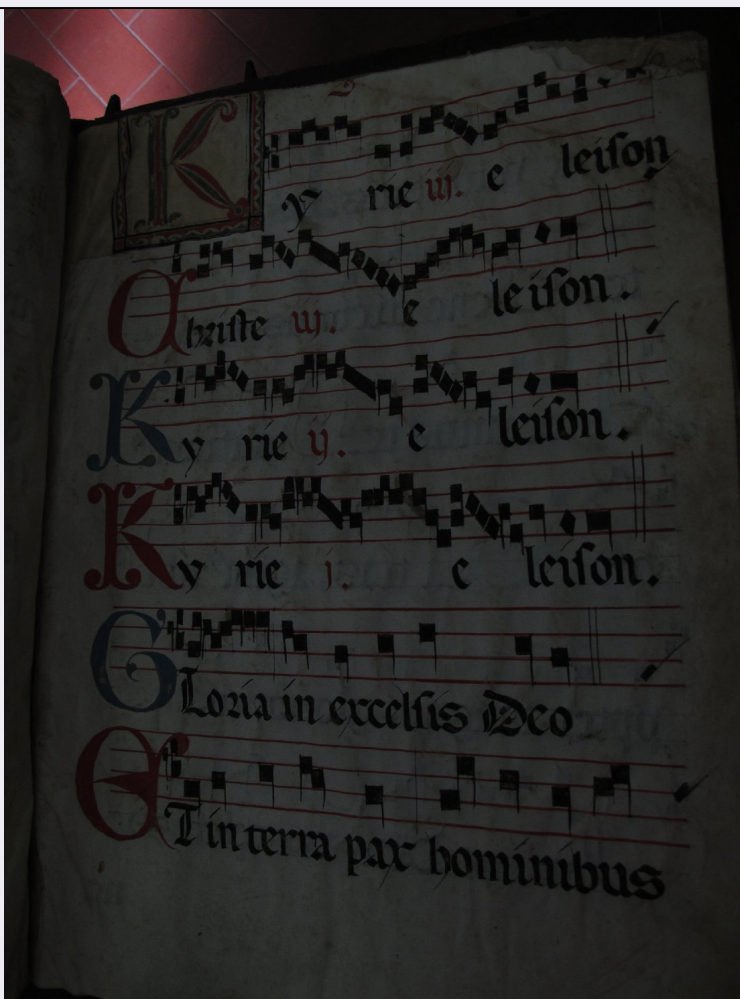 Ky rie iij. e leiſon
Chriſte iij. e leiſon.
Ky rie ij. e leiſon.
Ky rie j. e leiſon.
Gloria in excelſis Deo
ET in terra pax hominibus